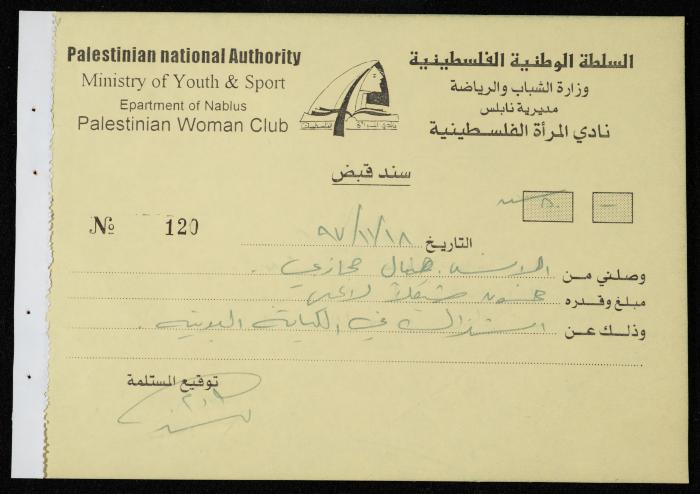 Palestinian national Authority
Ministry of Youth & Sport
Epartment of Nablus
Palestinian Woman Club
السلطة الوطنية الفلسطينية
وزارة الشباب والرياضة
مديرية نابلس
نادي المرأة الفلسطينية
سند قبض
№ 120
التاريخ ٩٧/١١/١٨
وصلني من الآنسة حجازي
مبلغ وقدره خمسون شيقلا لا غير
وذلك عن اشتراك في الكتابة اليدوية
توقيع المستلمة